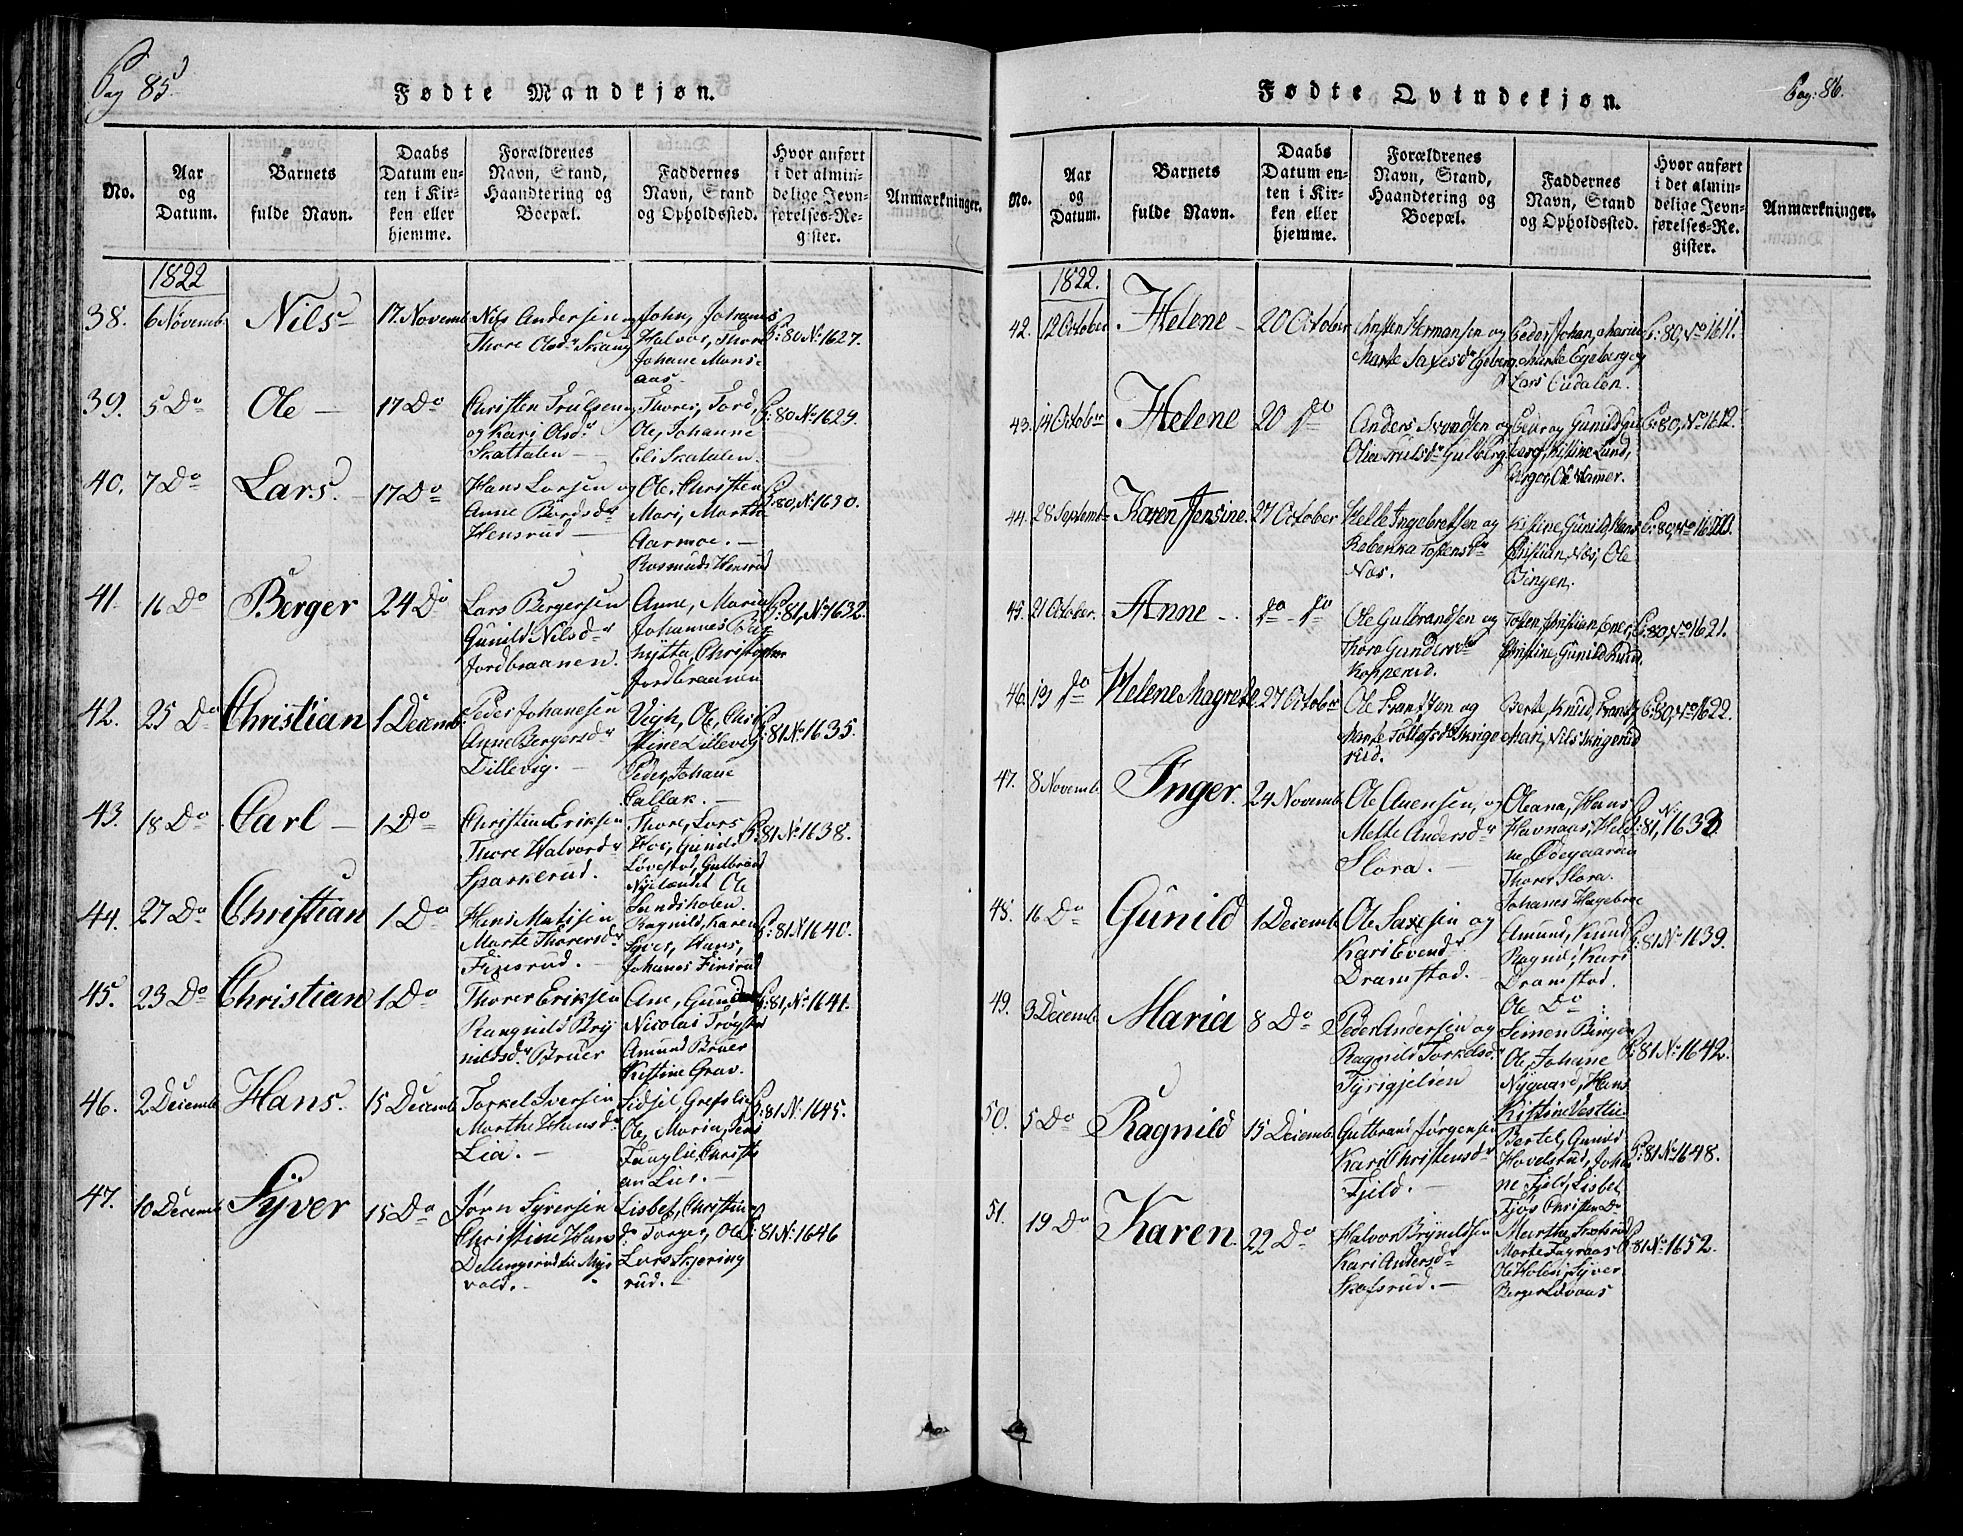 Pag 85
Fødte Mandkjøn.
No.
Aar og Datum.
Barnets fulde Navn.
Daabs Datum enten i Kirken eller hjemme.
Forældrenes Navn, Stand, Haandtering og Boepæl.
Faddernes Navn, Stand og Opholdssted.
Hvor anført i det almindelige Jevnførelses-Register.
Anmærkninger.
1822
38. 6 Novemb. Nils 17. Novemb.
Nils Andersen og
Thore Olsdr Skaug
John, Johanes
Halvor, Thore
Johane Mons
aas.
P: 80 No 1627.
39. 5 Do Ole 17 Do
Christen Trulsen
og Kari Olsdr
Skattalen
Thorer, Tord,
Ole, Johanne
Eli Skatalen.
P: 80 No 1629.
40. 7 Do Lars. 17 Do
Hans Larsen og
Anne Bordsdr
Hensrud
Ole, Christen
Mari, Martha
Aarmoe.
Rosmuds Hensrud
P: 80, No 1630.
41. 16 Do Berger 24 Do
Lars Bergersen
Gunild Nilsdr
Jordbraanen.
Anne, Maria
Johannes
hytta, Christopher
Jordbraanen
P: 81, No 1632.
42. 25 Do Christian 1 Decemb.
Peder Johanesen
Anne Bergersdr
Lillevig.
Vigh, Ole, Chri
stine Lillevig
Peder, Johane
Callak.
P: 81 No 1635.
43. 18 Do Carl 1 Do
Christian Eriksen
Thore Halvordr
Sparkerud.
Thore, Lars
Hoe, Gunild
Løvestad, Gulbrand
Nylændet Ole
Sandsholen.
P: 81 No 1638.
44. 27 Do Christian 1 Do
Hans Matisen
Marte Thorersdr
Finsrud.
Ragnild, Karen
Syver, Hans,
Johanes Finsrud
P: 81 No 1640.
45. 23 Do Christian 1 Do
Thorer Eriksen
Rangnild Bry
nildsdr Bruer
Ane, Gunder
Nicolai Trøgstad
Amund Bruer
Kistine Grav.
P: 81, No 1641.
46. 2 Decemb. Hans. 15 Decemb.
Torkel Iversen
Marthe Hansdr
Lia.
Sidsil Grefslie
Ole, Maria, Jens
Fanglie, Christi
an Lier.
P: 81 No 1645.
47. 10 Decemb. Syver 15 Do
Jørn Syversen
Christine Hans
Dellingsrud Mys
vold.
Lisbet, Christin
Torger, Ole
Lars Skjøring
rud.
P: 81 No 1646
Pag: 86.
Fødte Qvindekjøn.
No.
Aar og Datum.
Barnets fulde Navn.
Daabs Datum enten i Kirken eller hjemme.
Forældrenes Navn, Stand, Haandtering og Boepæl.
Faddernes Navn, Stand og Opholdssted.
Hvor anført i det almindelige Jevnførelses-Register.
Anmærkninger.
1822.
42. 12 October Helene 20 October
Christen Hermansen og
Marte Saxesdr Egeberg
Peder, Johan, Marie
Marte Egeberg og
Lars Oudalen.
P: 80, No 1611.
43. 14 October Helene 20 do
Anders Svendsen og
Olia Trulsdr Gulberg
Peder og Gunild
Kistine Lund,
Berger, Ole Hamer.
P: 80, No 1612.
44. 28 Septemb. Karen Jensine. 27 October
Helle Ingebretsen og
Rebenka Tostensdr
Næs.
Kistine Gunild, Hans
Christian, Næs, Ole
Bingen.
P: 80, No
45. 21 October. Anne do do
Ole Gulbrandsen og
Thora Gundersdr
Kopperud.
Tosten Christian, Ener,
Christine, Gunild Ruud.
P: 80, No 1621.
46. 19 do Helene Magrete 27 October
Ole Frantsen og
Marte Tollefsdr Skrige
rud.
Berte Knud, Frants
Mari, Nils Skrigerud
P: 80, No 1622.
47. 8 Novemb. Inger. 24 Novemb.
Ole Auensen, og
Mette Andersdr
Slora.
Oleana, Hans
Havnaas, Hele
ne Ødegaarden
Thorer Slora.
Johanes Hagebraa
P: 81, No 1633.
48. 16 Do Gunild 1 Decemb.
Ole Saxesen og
Kari Evendr
Dramstad.
Amund, Knud
Ragnd; Kari
Dramstad.
Ole Do
P: 81 No 1639.
49. 3 Decemb. Maria 8 Do
Peder Andersen og
Ragnild Torkelsdr
Tyrigjelien
Seimen Bingen
Ole, Johane
Nygaard, Hans
Kistine Vestlie
P: 81 No 1642.
50. 5 Do Ragnild 15 Decemb.
Gulbrand Jørgensen
Kari Christensdr
Fjeld.
Bertel, Gunild
Hovelsrud, Joha
ne Fjeld, Lisbet
Fjøs Christen Do
P: 81 No 1648.
51. 19 Do Karen. 22 Do
Halvor Brynildsen
Kari Andersdr
Skofsrud.
Marthe Skofsrud
Marte Fagraas
Ole Holen, Syver
Berger Lövaas
P: 81 No 1652.